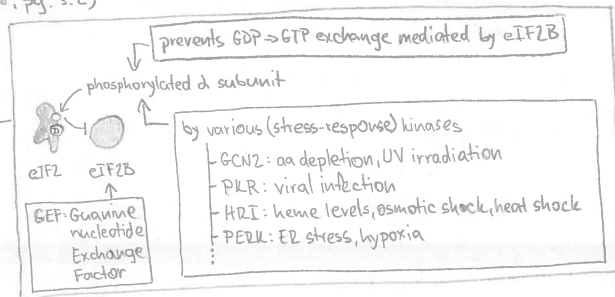 pg. 3.2)
prevents GDP→GTP exchange mediated by eIF2B
phosphorylated α subunit
eIF2 eIF2B
GEF: Guanine
nucleotide
Exchange
Factor
by various (stress-response) kinases
- GCN2: aa depletion, UV irradiation
- PKR: viral infection
- HRI: heme levels, osmotic shock, heat shock
- PERK: ER stress, hypoxia